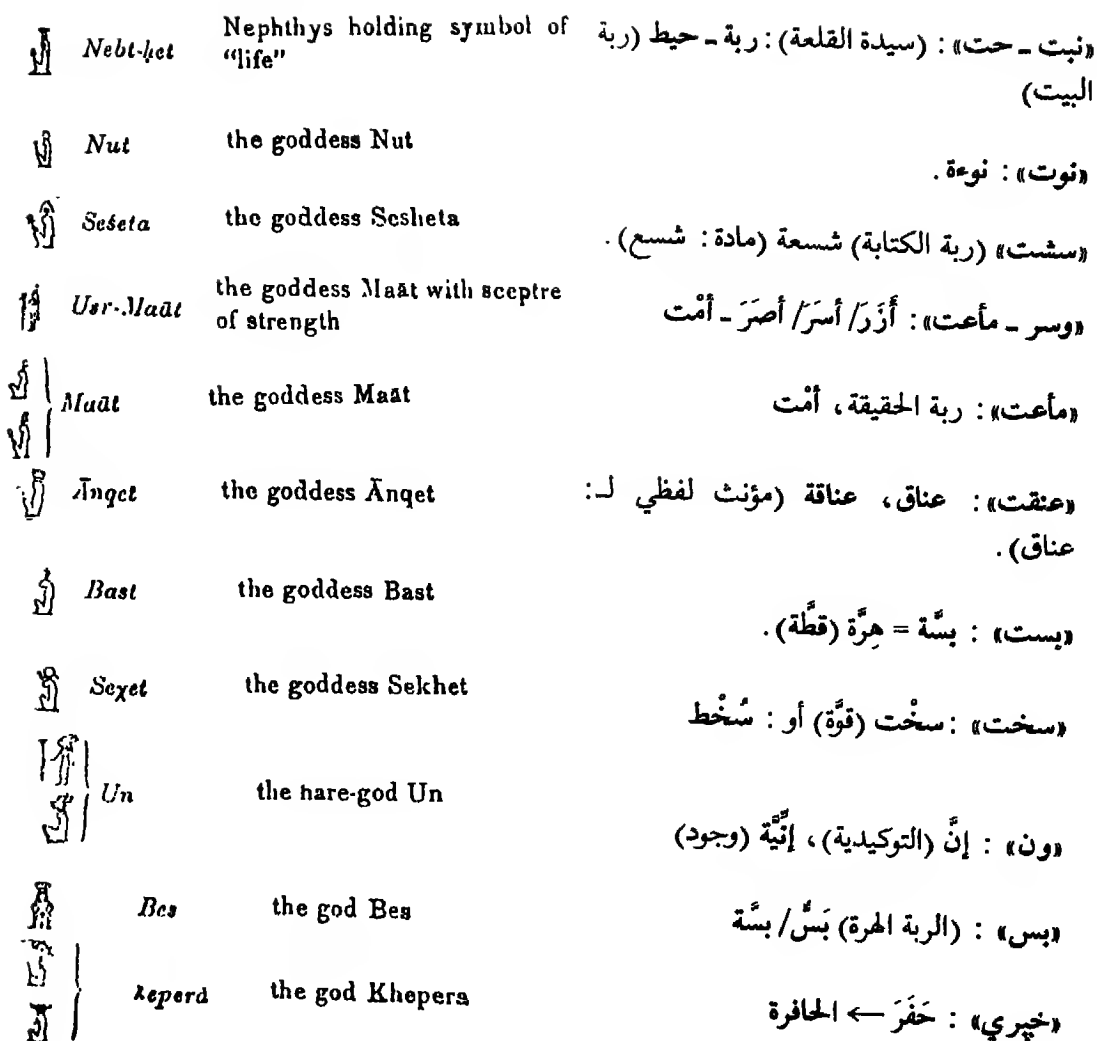 Nebt-ḥet Nephthys holding symbol of «نبت ـ حت» : (سيدة القلعة) : ربة ـ حيط (ربة
“life” البيت)
Nut the goddess Nut «نوت» : نوءة .
Sešeta the goddess Sesheta «سشت» (ربة الكتابة) شسعة (مادة : شسع) .
Usr-Maāt the goddess Maāt with sceptre «وسر ـ مأعت» : أَزَرَ/ أسَرَ/ أصَرَ ـ أمْت
of strength
Maāt the goddess Maāt «مأعت» : ربة الحقيقة، أمْت
Ānqet the goddess Ānqet «عنقت» : عناق، عناقة (مؤنث لفظي لـ :
عناق) .
Bast the goddess Bast «بست» : بسَّة = هِرَّة (قطَّة) .
Seχet the goddess Sekhet «سخت» : سخْت (قوَّة) أو : سُخْط
Un the hare-god Un «ون» : إنَّ (التوكيدية)، إنِّيَّة (وجود)
Bes the god Bes «بس» : (الربة الهرة) بَسٌّ/ بسَّة
χeperȧ the god Khepera «خپري» : حَفَرَ ← الحافرة